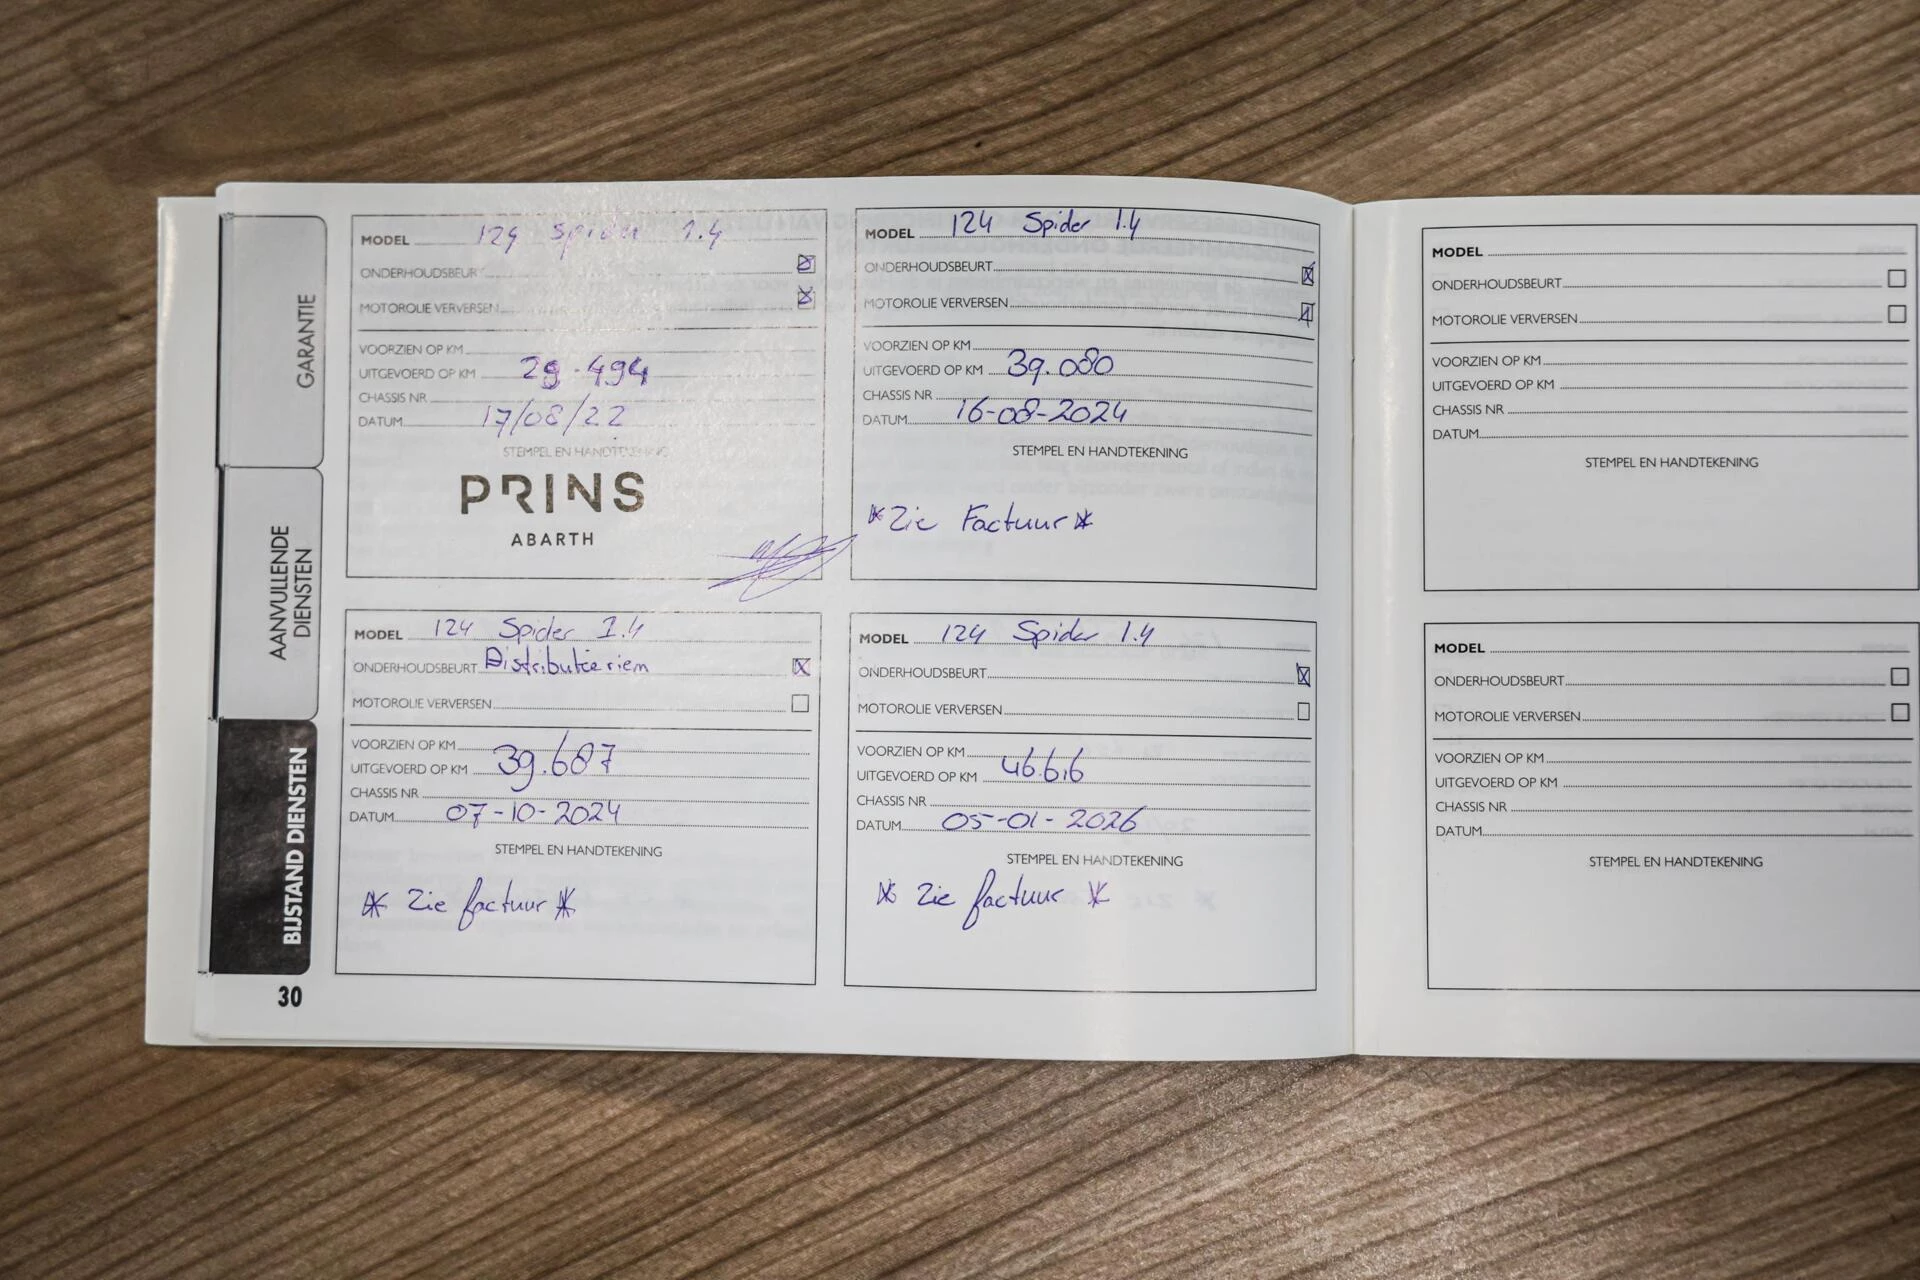 GARANTIE
AANVULLENDE
DIENSTEN
BIJSTAND DIENSTEN
30
MODEL 124 Spider 1.4
ONDERHOUDSBEUR
MOTOROLIE VERVERSEN
VOORZIEN OP KM
UITGEVOERD OP KM 29.494
CHASSIS NR
DATUM 17/08/22
STEMPEL EN HANDTEKENING
PRINS
ABARTH
MODEL 124 Spider 1.4
ONDERHOUDSBEURT
MOTOROLIE VERVERSEN
VOORZIEN OP KM
UITGEVOERD OP KM 39.080
CHASSIS NR
DATUM 16-08-2024
STEMPEL EN HANDTEKENING
*Zie Factuur*
MODEL 124 Spider 1.4
ONDERHOUDSBEURT Distributieriem
MOTOROLIE VERVERSEN
VOORZIEN OP KM
UITGEVOERD OP KM 39.687
CHASSIS NR
DATUM 07-10-2024
STEMPEL EN HANDTEKENING
* Zie factuur *
MODEL 124 Spider 1.4
ONDERHOUDSBEURT
MOTOROLIE VERVERSEN
VOORZIEN OP KM
UITGEVOERD OP KM 46.616
CHASSIS NR
DATUM 05-01-2026
STEMPEL EN HANDTEKENING
* Zie factuur *
MODEL
ONDERHOUDSBEURT
MOTOROLIE VERVERSEN
VOORZIEN OP KM
UITGEVOERD OP KM
CHASSIS NR
DATUM
STEMPEL EN HANDTEKENING
MODEL
ONDERHOUDSBEURT
MOTOROLIE VERVERSEN
VOORZIEN OP KM
UITGEVOERD OP KM
CHASSIS NR
DATUM
STEMPEL EN HANDTEKENING